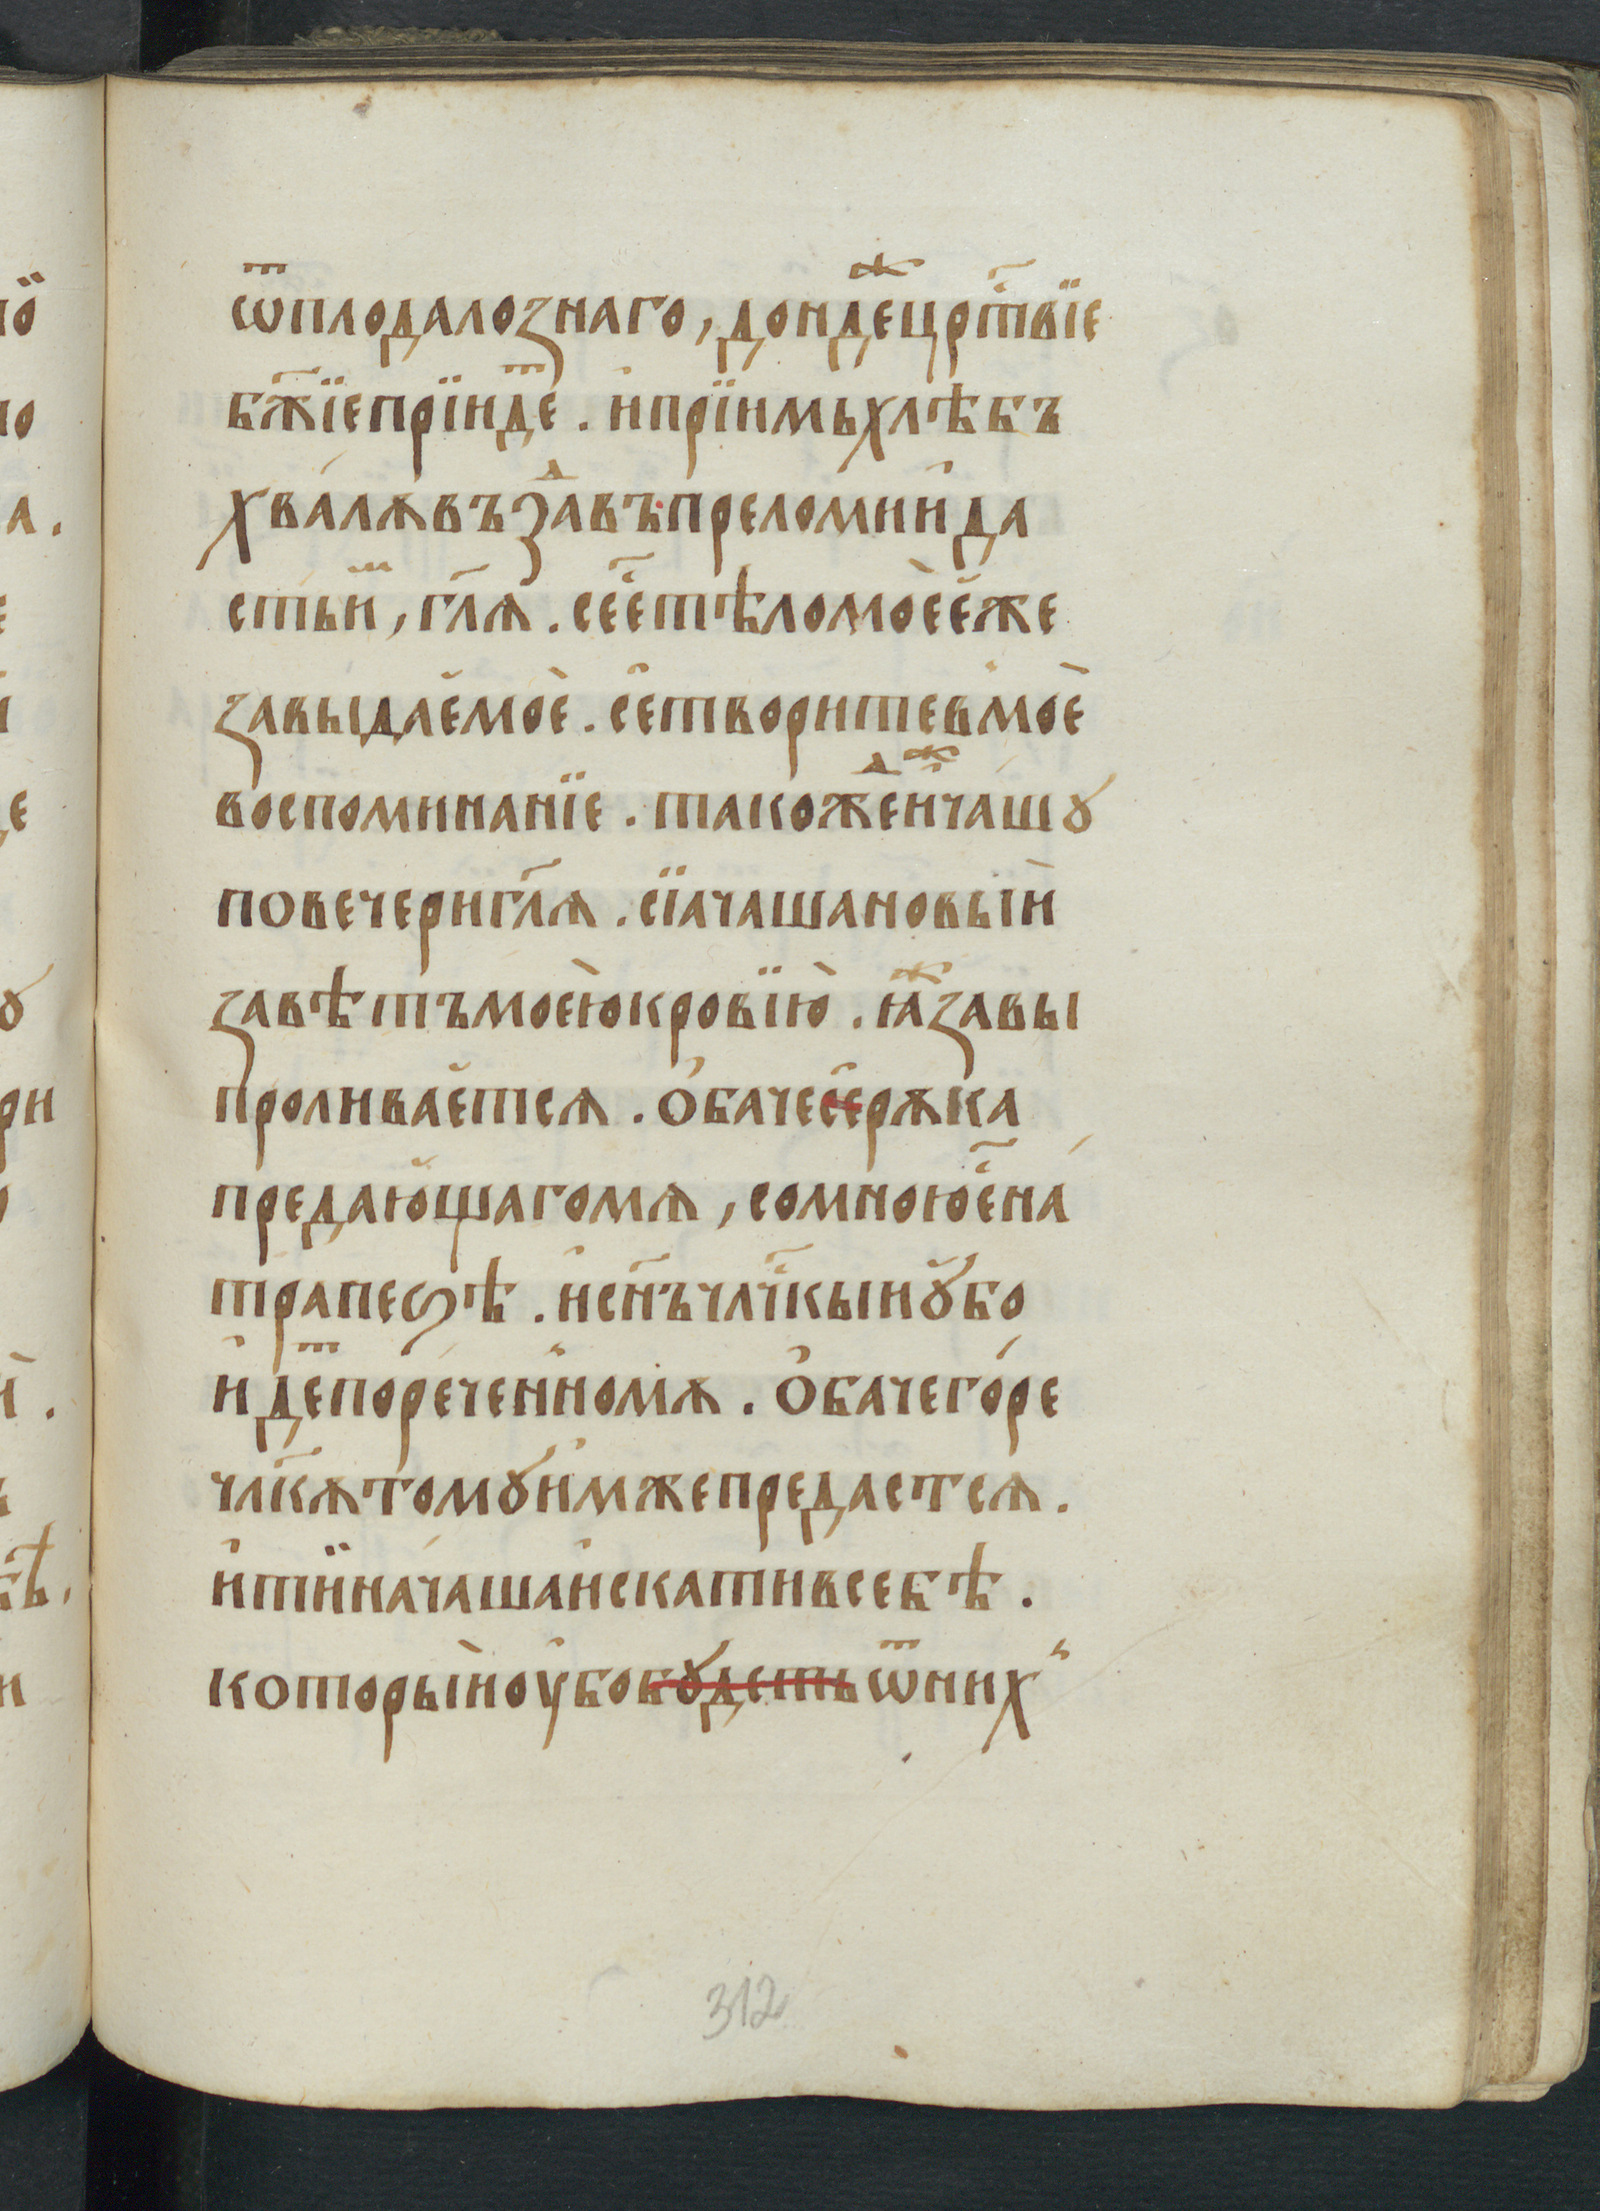 ѿплодалознаго, дондеⷤцр҃твїе
бж҃їепрїидеⷮ. ипрїимьхлѣбъ
хвалѫвъзⷣавъпреломиида
стьиⷨ, гл҃ѧ. сеⷭ҇етѣломоѐеже
завыдаемоѐ. сетворитевмоѐ
воспоминанїе. такожⷣеⷤичашꙋ
повечеригл҃ѧ. сїачашановыи
завѣтъмоеюкровїю̀. ꙗⷤзавы
проливаетсѧ. обачесерѫка
предающагомѧ, сомноюеⷭ҇на
трапеѕѣ. исн҃ъчл҃чкыиꙋбо
идеⷮпореченномѫ. обачегоре
чл҃кѫтомꙋимжепредаетсѧ.
итїиначашаискативсебѣ.
которыиоубобꙋдетьѿних
312